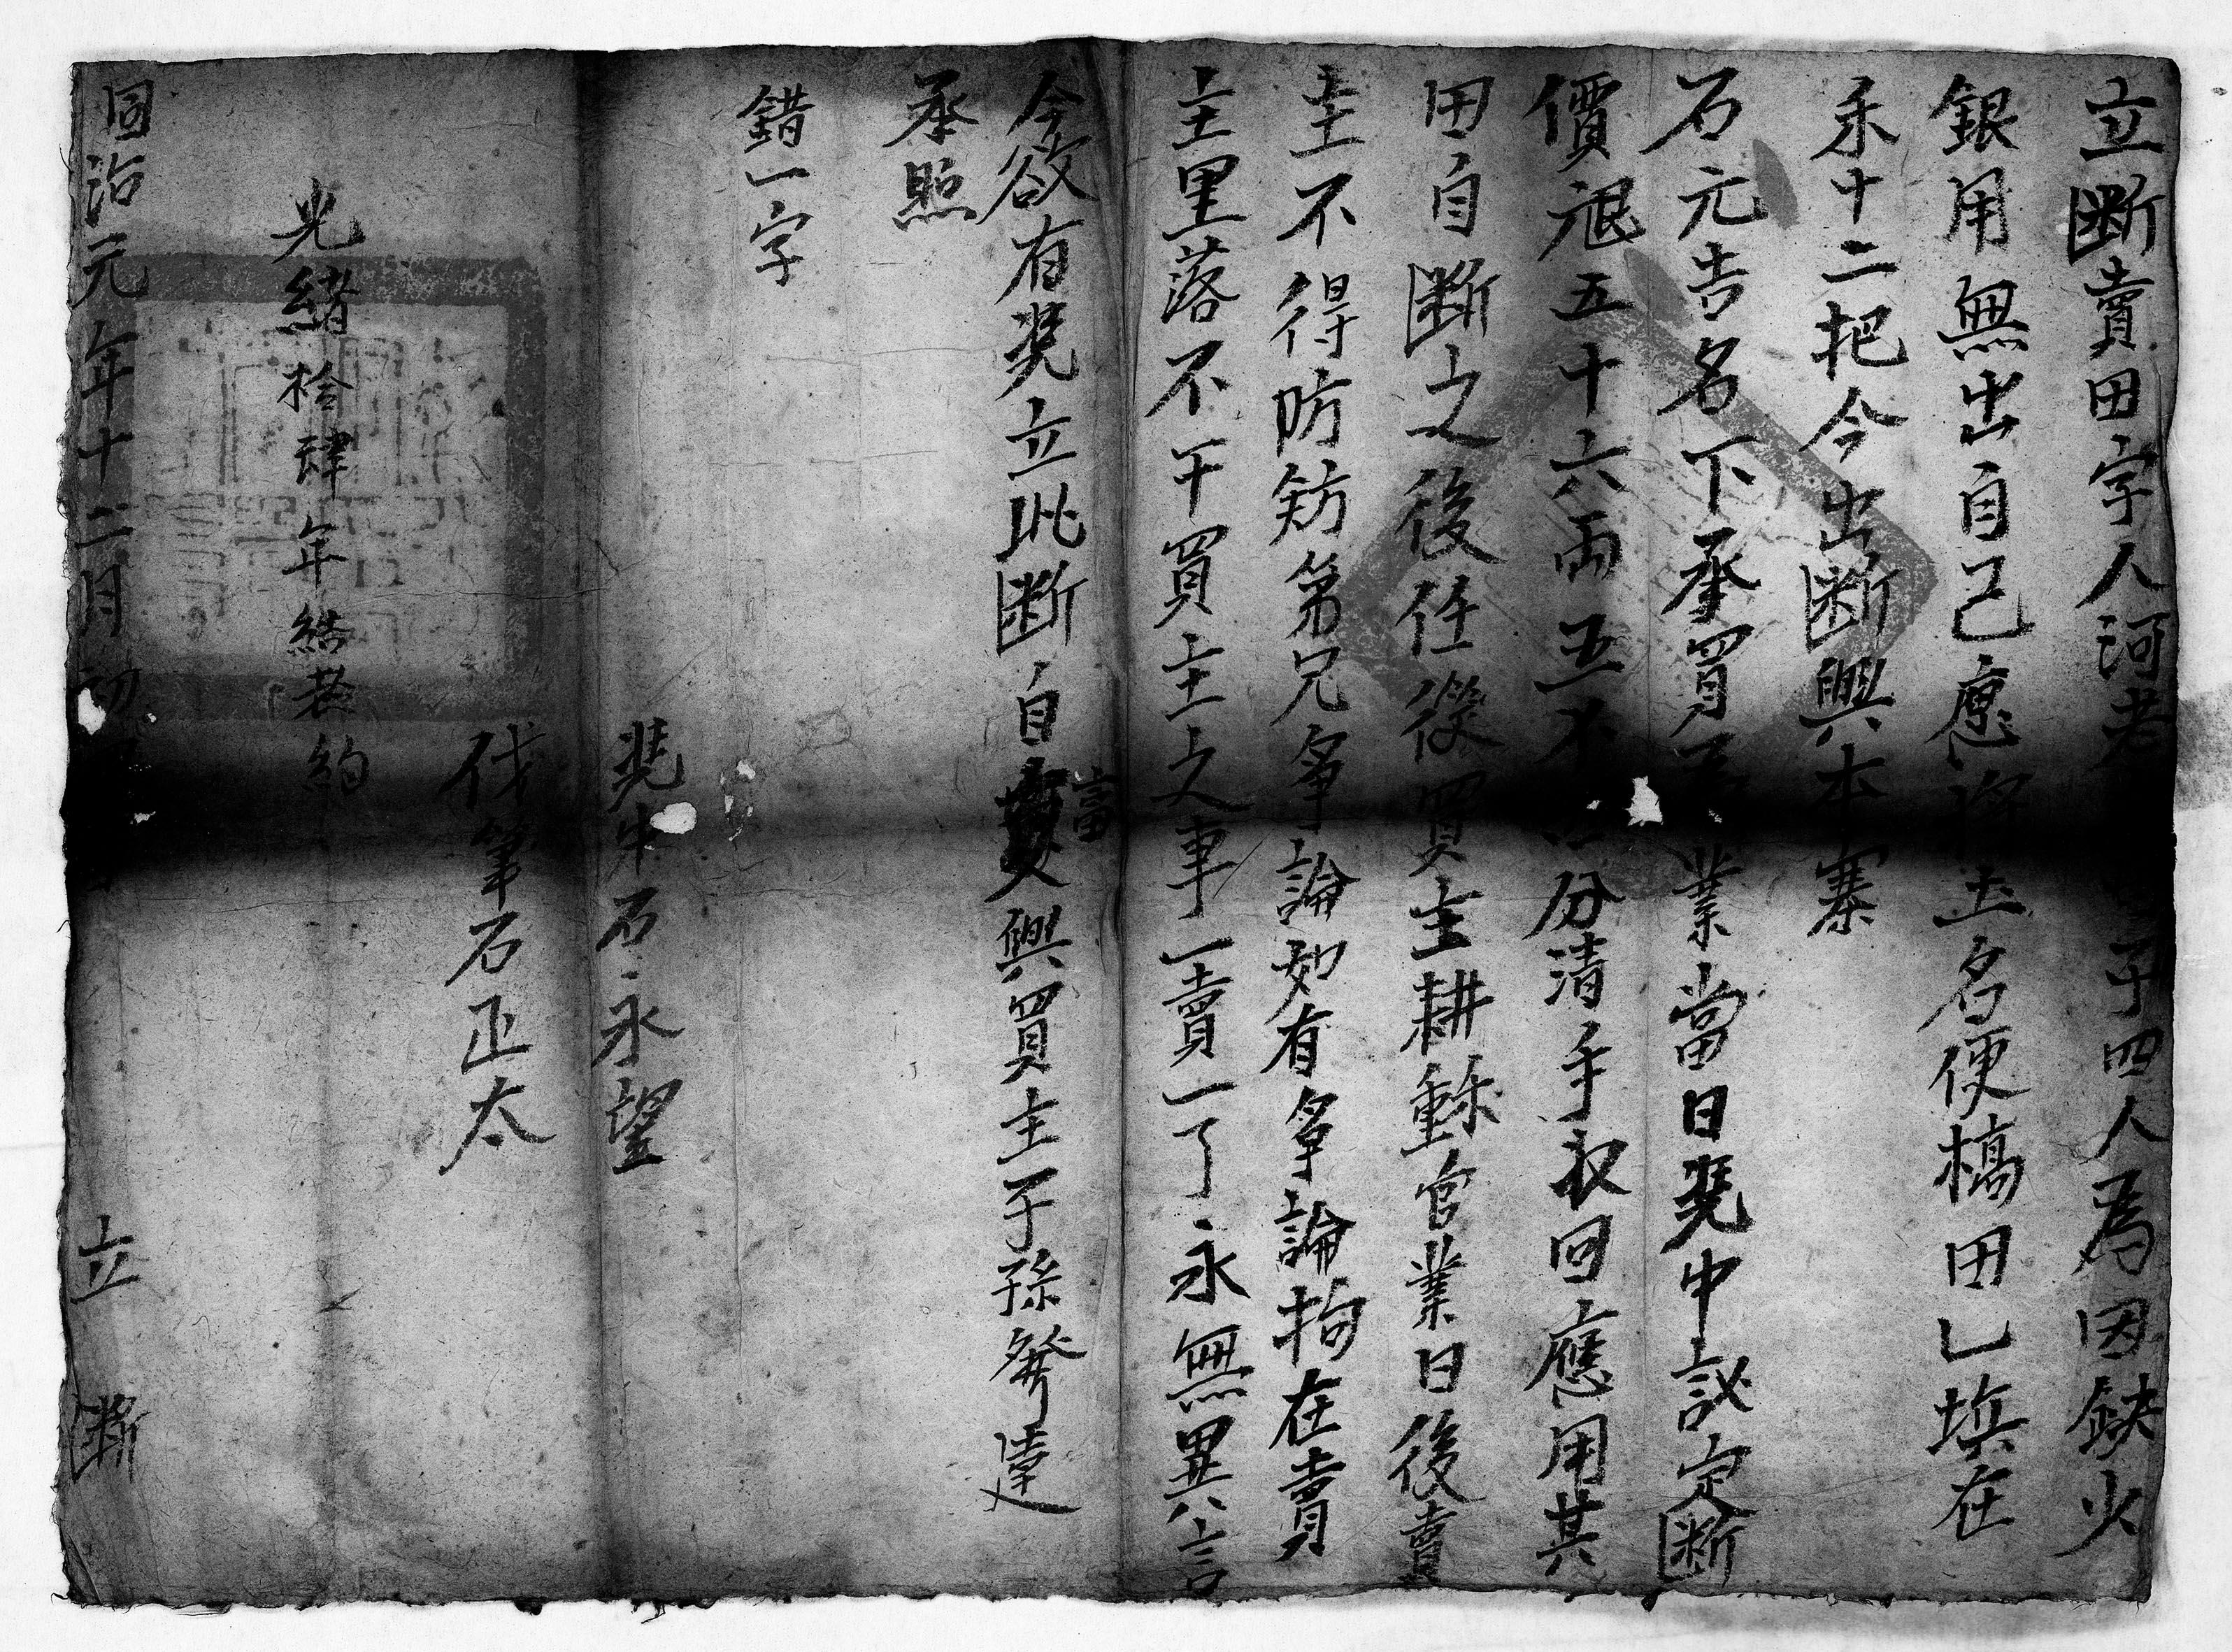 立断賣田字人河老子四人為因缺少
銀用無出自己應將土名便槁田乚坵在
禾十二把今出断與本寨
石元吉名下承買為業當日凭中議定断
價禐五十六両五不分清手収回應用其
田自断之後任從買主耕種官業日後賣
主不得防䤱第兄争論如有争論拘在賣
主里落不干買主之事一賣一了永無異言
今欲有凭立此断自與買主子孫發達
富
承照
錯一字
凭中石永望
代筆石正太
光緒拾肆年結老約
同治元年十二月初立断